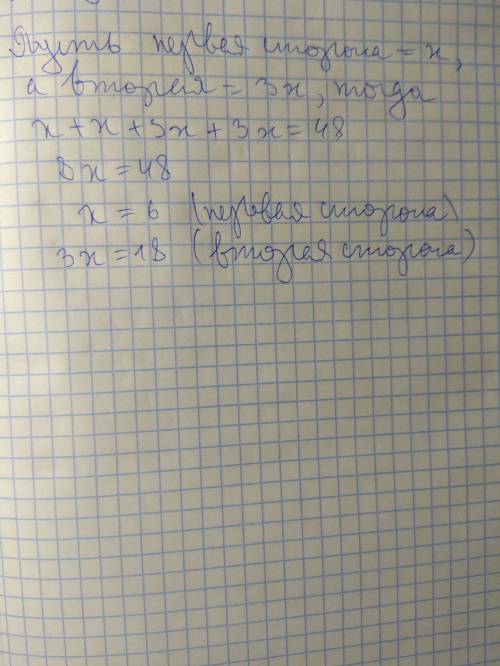 Пусть первая сторона = x,
а вторая = 3x, тогда
x + x + 3x + 3x = 48
8x = 48
x = 6 (первая сторона)
3x = 18 (вторая сторона)